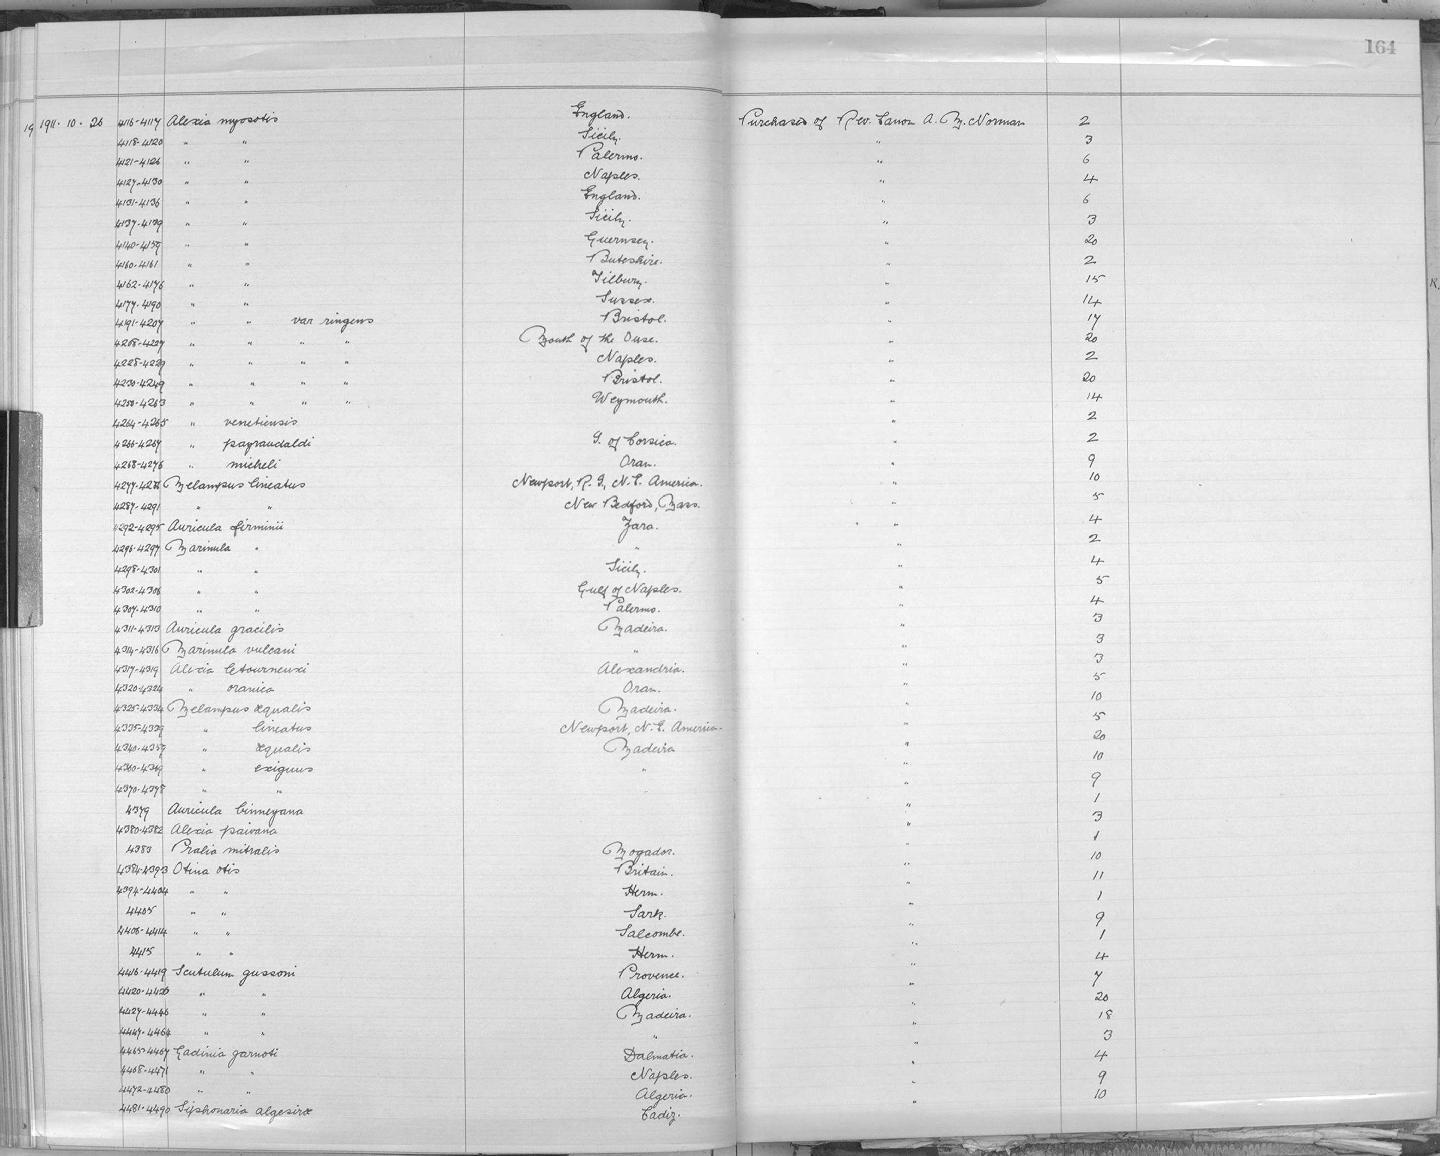 164
19 1911. 10. 26 4116-4117 Alexia myosotis England. Purchased of Rev. Canon A. M. Norman 2
4118-4120 " " Sicily. " 3
4121-4126 " " Palermo. " 6
4127-4130 " " Naples. " 4
4131-4136 " " England. " 6
4137-4139 " " Sicily. " 3
4140-4159 " " Guernsey. " 20
4160-4161 " " Buteshire. " 2
4162-4176 " " Tilbury. " 15
4177-4190 " " Sussex. " 14
4191-4207 " " var ringens Bristol. " 17
4208-4227 " " " " Mouth of the Ouse. " 20
4228-4229 " " " " Naples. " 2
4230-4249 " " " " Bristol. " 20
4250-4263 " " " " Weymouth. " 14
4264-4265 " venetiensis " 2
4266-4267 " payraudaldi G. of Corsica. " 2
4268-4276 " micheli Oran. " 9
4277-4286 Melampus lineatus Newport, R. I., N. E. America. " 10
4287-4291 " " New Bedford, Mass. " 5
4292-4295 Auricula firminii Zara. " 4
4296-4297 Marinula " " " 2
4298-4301 " " Sicily. " 4
4302-4306 " " Gulf of Naples. " 5
4307-4310 " " Palermo. " 4
4311-4313 Auricula gracilis Madeira. " 3
4314-4316 Marinula vulcani " " 3
4317-4319 Alexia letourneuxi Alexandria. " 3
4320-4324 " oranica Oran. " 5
4325-4334 Melampus æqualis Madeira. " 10
4335-4339 " lineatus Newport, N. E. America. " 5
4340-4359 " æqualis Madeira " 20
4360-4369 " exiguus " " 10
4370-4378 " " " 9
4379 Auricula binneyana " 1
4380-4382 Alexia paivana " 3
4383 Pralia mitralis Mogador. " 1
4384-4393 Otina otis Britain. " 10
4394-4404 " " Herm. " 11
4405 " " Sark. " 1
4406-4414 " " Salcombe. " 9
4415 " " Herm. " 1
4416-4419 Scutulum gussoni Provence. " 4
4420-4426 " " Algeria. " 7
4427-4446 " " Madeira. " 20
4447-4464 " " " " 18
4465-4467 Gadinia garnoti Dalmatia. " 3
4468-4471 " " Naples. " 4
4472-4480 " " Algeria. " 9
4481-4490 Siphonaria algesiræ Cadiz. " 10